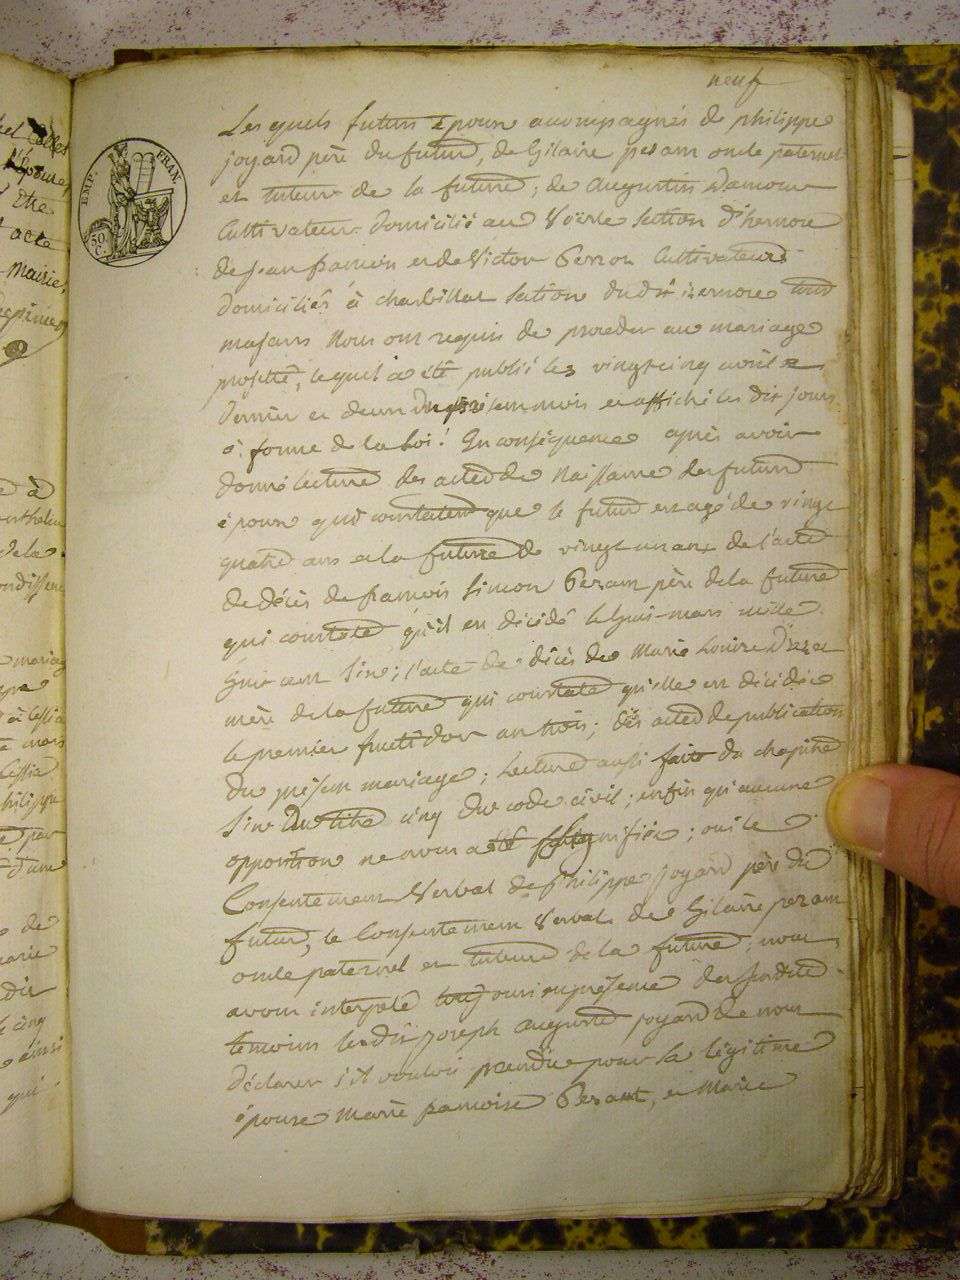 neuf
Les quels futurs époux acompagnés de philippe
joyard père du futur, de hilaire pesant oncle paternel
et tuteur de la future; de augustin Damour
Cultivateur domicilié au Voerle section d'hernore
de jean françois et de Victor Perron Cultivateurs
domiciliés à charbillat section dudit izernore tous
majeurs Nous ont requis de proceder au mariage
projetté, lequel a été publié les vingt cinq avril
dernier et deux du présent mois et affiché les dix jours
à forme de la Loi! En conséquence après avoir
donné lecture des actes de Naissance des futurs
époux qui constatent que le futur est agé de vingt
quatre ans et la future de vingt un ans de l'acte
de décès de françois Simon Pesant père de la future
qui constate qu'il est décidé le huit mars mille
huit cent six; l'acte de décès de Marie Louise
mère de la future qui constate qu'elle est décidée
le premier fructidor an trois; des actes de publication
du présent mariage; Lecture aussi faite du chapitre
six du titre cinq du code civil; enfin qu'aucune
opposition ne nous a été signifiée; oui le
Consentement Verbal de philippe joyard père du
futur, le Consentement Verbal de hilaire pesant
oncle paternel et tuteur de la future; nous
avons interpelé toujours en présence des susdits
temoins ledit joseph auguste joyard de nous
déclarer s'il vouloit prendre pour sa légitime
épouse Marie françoise Pesant, et Marie
EMP. FRAN.
50
C.